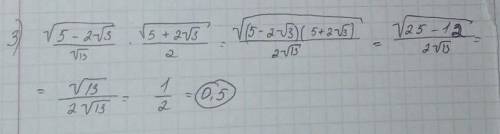 3) √(5 - 2√3)/√13 · √(5 + 2√3)/2 = √((5 - 2√3)(5 + 2√3))/(2√13) = √(25 - 12)/(2√13) =
= √13/(2√13) = 1/2 = 0,5